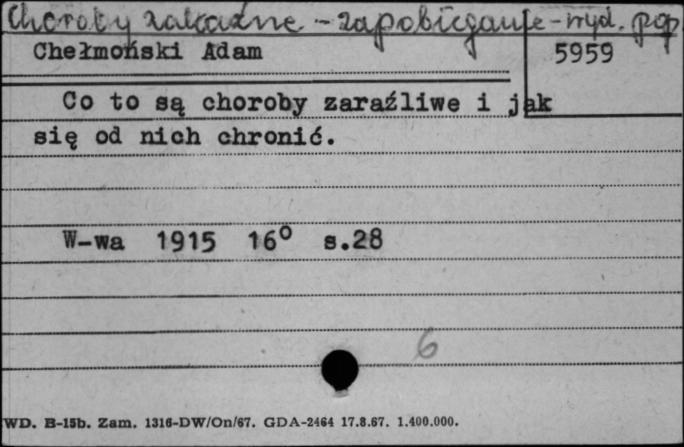 Choroby zakaźne - zapobieganie - wyd. pop.
Chełmoński Adam
5959
Co to są choroby zaraźliwe i jak
się od nich chronić.
W-wa 1915 16° s.28
6
WD. B-15b. Zam. 1316-DW/On/67. GDA-2464 17.8.67. 1.400.000.